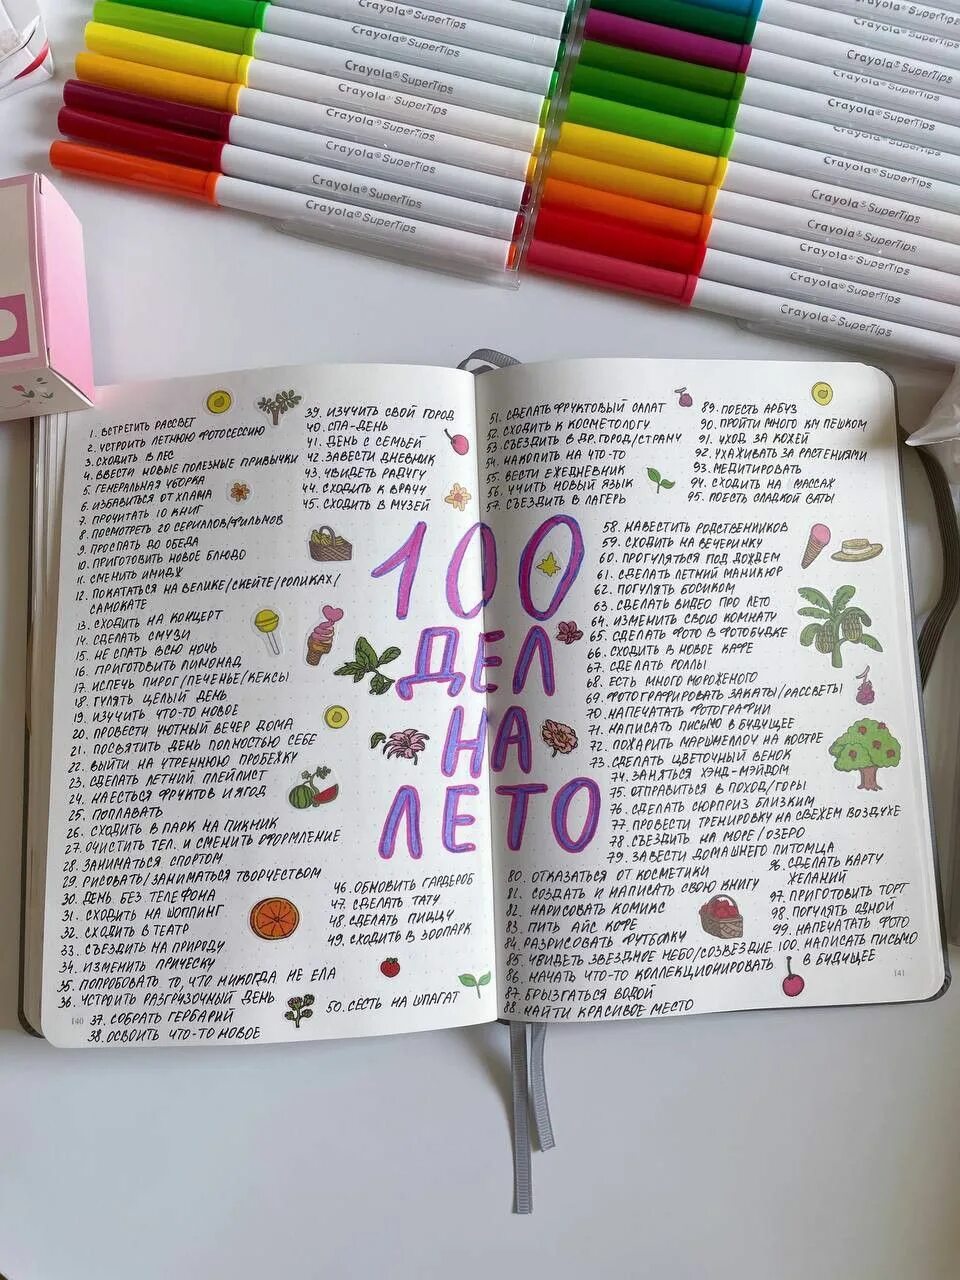 Crayola® SuperTips
Crayola® SuperTips
Crayola® SuperTips
Crayola® SuperTips
Crayola® SuperTips
Crayola® SuperTips
Crayola® SuperTips
Crayola® SuperTips
Crayola® SuperTips
Crayola® SuperTips
Crayola® SuperTips
Crayola® SuperTips
Crayola® SuperTips
Crayola® SuperTips
Crayola® SuperTips
Crayola® SuperTips
Crayola® SuperTips
Crayola® SuperTips
1. ВСТРЕТИТЬ РАССВЕТ
2. УСТРОИТЬ ЛЕТНЮЮ ФОТОСЕССИЮ
3. СХОДИТЬ В ЛЕС
4. ВВЕСТИ НОВЫЕ ПОЛЕЗНЫЕ ПРИВЫЧКИ
5. ГЕНЕРАЛЬНАЯ УБОРКА
6. ИЗБАВИТЬСЯ ОТ ХЛАМА
7. ПРОЧИТАТЬ 10 КНИГ
8. ПОСМОТРЕТЬ 20 СЕРИАЛОВ/ФИЛЬМОВ
9. ПРОСПАТЬ ДО ОБЕДА
10. ПРИГОТОВИТЬ НОВОЕ БЛЮДО
11. СМЕНИТЬ ИМИДЖ
12. ПОКАТАТЬСЯ НА ВЕЛИКЕ/СКЕЙТЕ/РОЛИКАХ/
САМОКАТЕ
13. СХОДИТЬ НА КОНЦЕРТ
14. СДЕЛАТЬ СМУЗИ
15. НЕ СПАТЬ ВСЮ НОЧЬ
16. ПРИГОТОВИТЬ ЛИМОНАД
17. ИСПЕЧЬ ПИРОГ/ПЕЧЕНЬЕ/КЕКСЫ
18. ГУЛЯТЬ ЦЕЛЫЙ ДЕНЬ
19. ИЗУЧИТЬ ЧТО-ТО НОВОЕ
20. ПРОВЕСТИ УЮТНЫЙ ВЕЧЕР ДОМА
21. ПОСВЯТИТЬ ДЕНЬ ПОЛНОСТЬЮ СЕБЕ
22. ВЫЙТИ НА УТРЕННЮЮ ПРОБЕЖКУ
23. СДЕЛАТЬ ЛЕТНИЙ ПЛЕЙЛИСТ
24. НАЕСТЬСЯ ФРУКТОВ И ЯГОД
25. ПОПЛАВАТЬ
26. СХОДИТЬ В ПАРК НА ПИКНИК
27. ОЧИСТИТЬ ТЕЛ. И СМЕНИТЬ ОФОРМЛЕНИЕ
28. ЗАНИМАТЬСЯ СПОРТОМ
29. РИСОВАТЬ/ЗАНИМАТЬСЯ ТВОРЧЕСТВОМ
30. ДЕНЬ БЕЗ ТЕЛЕФОНА
31. СХОДИТЬ НА ШОППИНГ
32. СХОДИТЬ В ТЕАТР
33. СЪЕЗДИТЬ НА ПРИРОДУ
34. ИЗМЕНИТЬ ПРИЧЕСКУ
35. ПОПРОБОВАТЬ ТО, ЧТО НИКОГДА НЕ ЕЛА
36. УСТРОИТЬ РАЗГРУЗОЧНЫЙ ДЕНЬ
37. СОБРАТЬ ГЕРБАРИЙ
38. ОСВОИТЬ ЧТО-ТО НОВОЕ
140
39. ИЗУЧИТЬ СВОЙ ГОРОД
40. СПА-ДЕНЬ
41. ДЕНЬ С СЕМЬЕЙ
42. ЗАВЕСТИ ДНЕВНИК
43. УВИДЕТЬ РАДУГУ
44. СХОДИТЬ К ВРАЧУ
45. СХОДИТЬ В МУЗЕЙ
46. ОБНОВИТЬ ГАРДЕРОБ
47. СДЕЛАТЬ ТАТУ
48. СДЕЛАТЬ ПИЦЦУ
49. СХОДИТЬ В ЗООПАРК
50. СЕСТЬ НА ШПАГАТ
100
ДЕЛ
НА
ЛЕТО
51. СДЕЛАТЬ ФРУКТОВЫЙ САЛАТ
52. СХОДИТЬ К КОСМЕТОЛОГУ
53. СЪЕЗДИТЬ В ДР. ГОРОД/СТРАНУ
54. НАКОПИТЬ НА ЧТО-ТО
55. ВЕСТИ ЕЖЕДНЕВНИК
56. УЧИТЬ НОВЫЙ ЯЗЫК
57. СЪЕЗДИТЬ В ЛАГЕРЬ
58. НАВЕСТИТЬ РОДСТВЕННИКОВ
59. СХОДИТЬ НА ВЕЧЕРИНКУ
60. ПРОГУЛЯТЬСЯ ПОД ДОЖДЕМ
61. СДЕЛАТЬ ЛЕТНИЙ МАНИКЮР
62. ПОГУЛЯТЬ БОСИКОМ
63. СДЕЛАТЬ ВИДЕО ПРО ЛЕТО
64. ИЗМЕНИТЬ СВОЮ КОМНАТУ
65. СДЕЛАТЬ ФОТО В ФОТОБУДКЕ
66. СХОДИТЬ В НОВОЕ КАФЕ
67. СДЕЛАТЬ РОЛЛЫ
68. ЕСТЬ МНОГО МОРОЖЕНОГО
69. ФОТОГРАФИРОВАТЬ ЗАКАТЫ/РАССВЕТЫ
70. НАПЕЧАТАТЬ ФОТОГРАФИИ
71. НАПИСАТЬ ПИСЬМО В БУДУЩЕЕ
72. ПОЖАРИТЬ МАРШМЕЛЛОУ НА КОСТРЕ
73. СДЕЛАТЬ ЦВЕТОЧНЫЙ ВЕНОК
74. ЗАНЯТЬСЯ ХЭНД-МЭЙДОМ
75. ОТПРАВИТЬСЯ В ПОХОД/ГОРЫ
76. СДЕЛАТЬ СЮРПРИЗ БЛИЗКИМ
77. ПРОВЕСТИ ТРЕНИРОВКУ НА СВЕЖЕМ ВОЗДУХЕ
78. СЪЕЗДИТЬ НА МОРЕ/ОЗЕРО
79. ЗАВЕСТИ ДОМАШНЕГО ПИТОМЦА
80. ОТКАЗАТЬСЯ ОТ КОСМЕТИКИ
81. СОЗДАТЬ И НАПИСАТЬ СВОЮ КНИГУ
82. НАРИСОВАТЬ КОМИКС
83. ПИТЬ АЙС КОФЕ
84. РАЗРИСОВАТЬ ФУТБОЛКУ
85. УВИДЕТЬ ЗВЕЗДНОЕ НЕБО/СОЗВЕЗДИЕ
86. НАЧАТЬ ЧТО-ТО КОЛЛЕКЦИОНИРОВАТЬ
87. БРЫЗГАТЬСЯ ВОДОЙ
88. НАЙТИ КРАСИВОЕ МЕСТО
89. ПОЕСТЬ АРБУЗ
90. ПРОЙТИ МНОГО КМ ПЕШКОМ
91. УХОД ЗА КОЖЕЙ
92. УХАЖИВАТЬ ЗА РАСТЕНИЯМИ
93. МЕДИТИРОВАТЬ
94. СХОДИТЬ НА МАССАЖ
95. ПОЕСТЬ СЛАДКОЙ ВАТЫ
96. СДЕЛАТЬ КАРТУ
ЖЕЛАНИЙ
97. ПРИГОТОВИТЬ ТОРТ
98. ПОГУЛЯТЬ ОДНОЙ
99. НАПЕЧАТАТЬ ФОТО
100. НАПИСАТЬ ПИСЬМО
В БУДУЩЕЕ
141